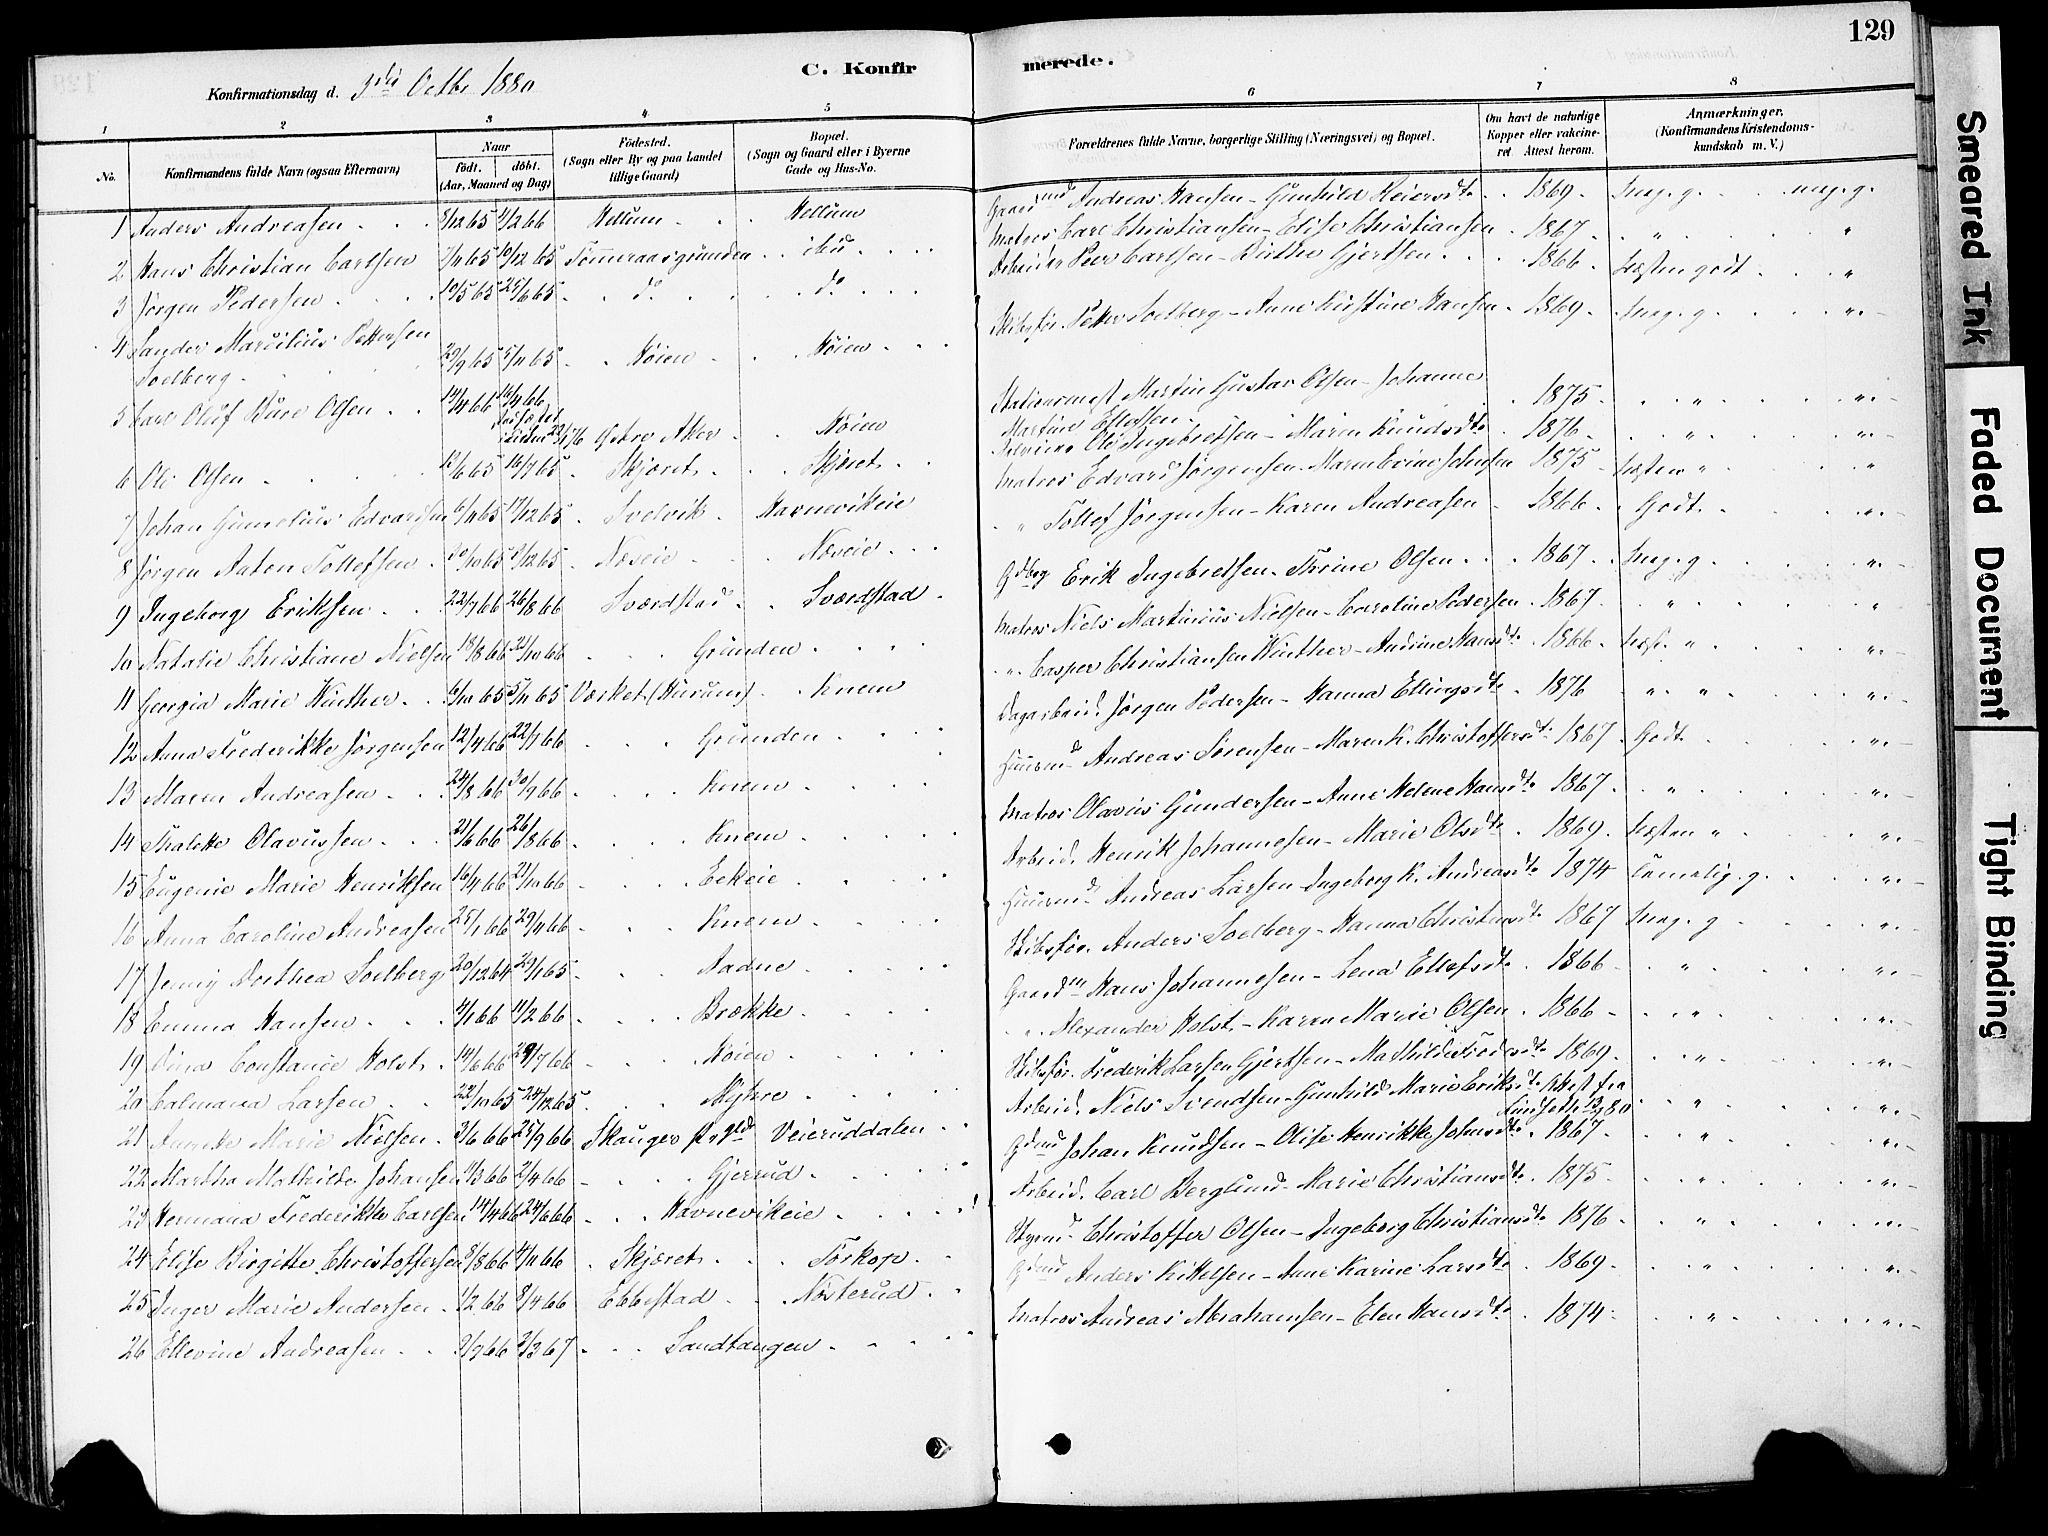 129
C. Konfirmerede.
Konfirmationsdag d. 3die Octbr 1880
1 2 3 4 5 6 7 8
No. Konfirmandens fulde Navn (ogsaa Efternavn) Naar født. døbt. (Aar, Maaned og Dag) Fødested. (Sogn eller By og paa Landet tillige Gaard) Bopæl. (Sogn og Gaard eller i Byerne Gade og Hus-No. Forældrenes fulde Navne, borgerlige Stilling (Næringsvei) og Bopæl. Om havt de naturlige Kopper eller vakcineret Attest herom. Anmærkninger. (Konfirmandens Kristendomskundskab m. V.)
1 Anders Andreasen 65 /2 66 Hellum Hellum Gaardmd Andreas Hansen - Gunhild Reiersdtr 1869 meg. g. meg. g.
2 Hans Christian Carlsen /11 65 10/12 65 Tømmeraasgrunden ibid Matros Carl Christiansen - Elise Christiansen 1867 " "
3 Jørgen Pedersen 10/5 65 25/6 65 do do Arbeider Peer Carlsen - Birthe Gjertsen 1866 Næsten godt "
4 Sander Marcilius Pettersen Solberg 29/9 65 5/11 65 Høien Høien Skibsfør. Petter Soelberg - Anne Kirstine Hansen 1869 meg. g. "
5 Carl Oluf Buce Olsen 14/4 66 16/4 66 Østre Aker Høien Stationsmest. Martin Gustav Olsen - Johanne Martine Ellefsen 1875 " "
6 Ole Olsen 12/6 65 16/7 65 Skjæret Skjæret Ole Ingebretsen - Maren Knudsdtr 1876 " "
7 Johan Gunelius Edvardsen 6/11 65 17/12 65 Svelvik Havnevikeie Matros Edvard Jørgensen - Maren Evine Johnsen 1875 Næsten " "
8 Jørgen Anton Tollefsen 30/10 65 /12 65 Næseie Næseie " Tollef Jørgensen - Karen Andreasen 1866 Godt "
9 Ingeborg Eriksen 22/7 66 26/8 66 Sværdstad Sværdstad Gdbrg Erik Ingebretsen - Thrine Olsen 1867 meg. g "
10 Natalie Christiane Nielsen 18/8 66 21/10 66 Grunden Matros Niels Martinius Nielsen - Caroline Pedersen 1867 " "
11 Georgia Marie Winther 6/10 65 5/11 65 Værket (Hurum) Knem " Casper Christiansen Winther - Andrine Hansdtr 1866 Næst. " "
12 Anna Frederikke Jørgensen 12/4 66 22/7 66 Grunden Dagarbeid. Jørgen Pedersen - Hanna Ellingsdtr 1876 " " "
13 Maren Andreasen 24/8 66 30/9 66 Knem Huusmd Andreas Sørensen - Maren K. Christoffersdtr 1867 Godt "
14 Thalette Olavussen 21/6 66 26/8 66 Knem Matros Olavus Gundersen - Anne Helene Hansdtr 1867 " "
15 Eugenie Marie Henriksen 16/4 66 21/10 66 Eekeie Arbeid. Henrik Johannesen - Marie Olsdtr 1869 Næsten " "
16 Anna Caroline Andreasen 25/1 66 29/4 66 Knem Huusmd Andreas Larsen - Ingeborg K. Andreasdtr 1874 Temmelig g. "
17 Jenny Dorthea Solberg 20/12 64 29/1 65 Aadne Skibsfør. Anders Soelberg - Hanna Christensdtr 1867 meg. g "
18 Emma Hansen /1 66 11/2 66 Brække Gaardm Hans Johannesen - Lena Ellefsdtr 1866 " "
19 Dina Constance Holst 14/6 66 29/7 66 Høien " Alexander Holst - Karen Marie Olsen 1866 " "
20 Calmana Larsen 22/10 65 24/12 65 Nyhre Skibsfør. Frederik Larsen Gjertsen - Mathilde Fredersdtr 1869 " "
21 Annette Marie Nielsen 3/6 66 25/9 66 Skauger Prgld Veieruddalen Arbeid. Niels Svendsen - Gunhild Marie Eriksdtr Attest fra 80 " "
22 Martha Mathilde Johansen 11/3 66 2/4 66 Gjerrud Gdmd Johan Knudsen - Olise Henrikke Johnsdtr 1867 " "
23 Hermana Frederikke Carlsen 14/4 66 24/6 66 Havnevikeie Arbeid. Carl Berglund - Marie Christiansdtr 1875 " "
24 Elise Birgitte Christoffersen 8/8 66 4/11 66 Skjæret Torkop Styrmd Christoffer Olsen - Ingeborg Christiansdtr 1876 " "
25 Inger Marie Andersen 1/2 66 8/4 66 Ebbestad Nøsterud Gdmd Anders Kittelsen - Anne Karine Larsdtr 1869 " "
26 Ellevine Andreasen 2/7 66 3/3 67 Sandtangen Matros Andreas Abrahamsen - Elen Hansdtr 1874 " "
Smeared Ink
Faded Document
Tight Binding